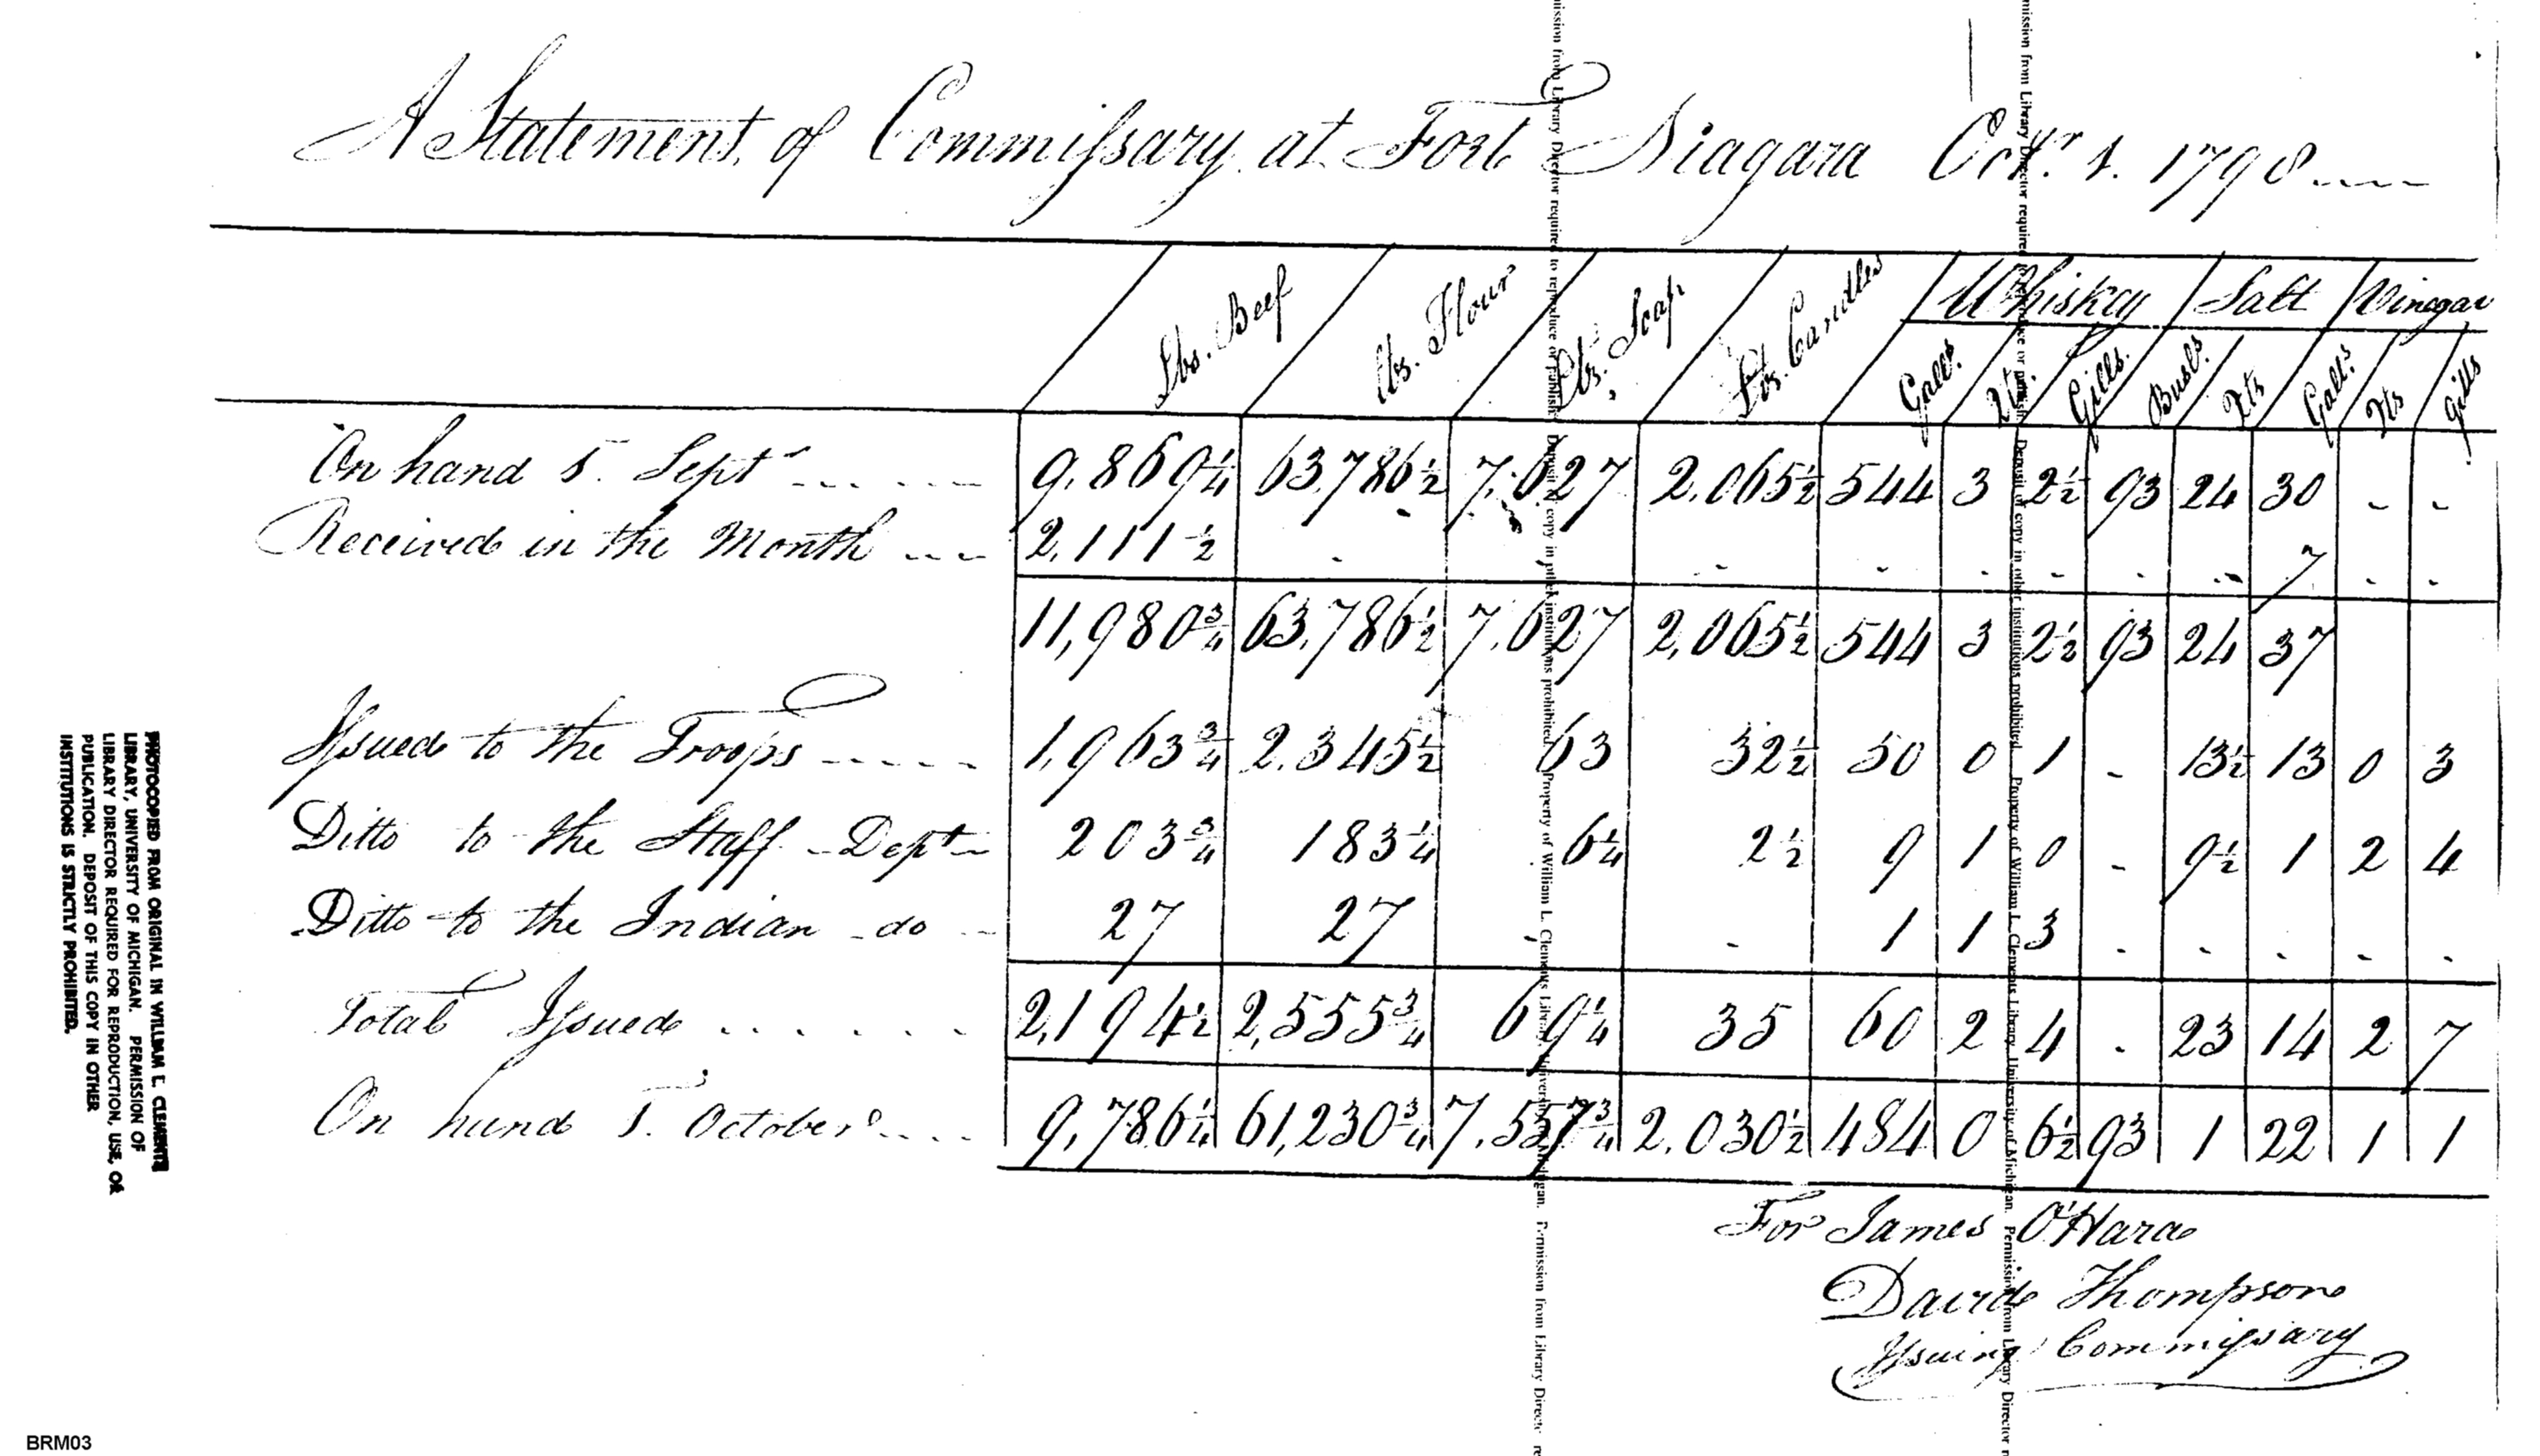 A Statement of Commissary at Fort Niagara Octr. 1. 1798
Lbs. Beef Lbs. Flour Lbs. Soap Lbs. Candles Whiskey Salt Vinegar
Galls. Qts. Gills. Busls. Qts Galls. Qts gills
On hand 1. Septr 9,869 1/4 63,786 1/2 7,627 2,065 1/2 544 3 2 1/2 93 24 30 - -
Received in the Month 2,111 1/2 - - - - - - - - 7 - -
11,980 3/4 63,786 1/2 7,627 2,065 1/2 544 3 2 1/2 93 24 37
Issued to the Troops 1,963 3/4 2,345 1/2 63 32 1/2 50 0 1 - 13 1/2 13 0 3
Ditto to the Staff Dept 203 3/4 183 1/4 6 1/4 2 1/2 9 1 0 - 9 1/2 1 2 4
Ditto to the Indian do 27 27 - - 1 1 3 - - - - -
Total Issued 2,194 1/2 2,555 3/4 69 1/4 35 60 2 4 - 23 14 2 7
On hand 1. October 9,786 1/4 61,230 3/4 7,557 3/4 2,030 1/2 484 0 6 1/2 93 1 22 1 1
For James O'Hara
David Thompson
Issuing Commissary
PHOTOCOPIED FROM ORIGINAL IN WILLIAM L. CLEMENTS
LIBRARY, UNIVERSITY OF MICHIGAN. PERMISSION OF
LIBRARY DIRECTOR REQUIRED FOR REPRODUCTION, USE, OR
PUBLICATION. DEPOSIT OF THIS COPY IN OTHER
INSTITUTIONS IS STRICTLY PROHIBITED.
mission from Library Director required to reproduce or publish. Deposit of copy in other institutions prohibited. Property of William L. Clements Library, University of Michigan. Permission from Library Direct re
mission from Library Director required to reproduce or publish. Deposit of copy in other institutions prohibited. Property of William L. Clements Library, University of Michigan. Permission from Library Director r
BRM03